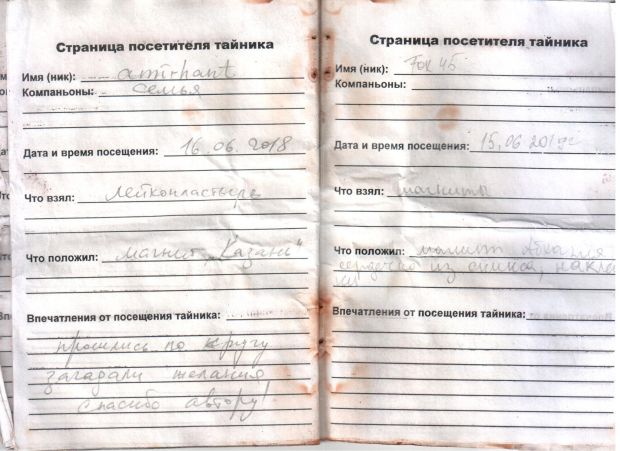 Страница посетителя тайника
Имя (ник): amirhant
Компаньоны: семья
Дата и время посещения: 16.06.2018
Что взял: лейкопластырь
Что положил: магнит "Казань"
Впечатления от посещения тайника:
прошлись по кругу
загадали желания
спасибо автору!
Страница посетителя тайника
Имя (ник): Fox 45
Компаньоны:
Дата и время посещения: 15.06.2019г
Что взял: магниты
Что положил: магнит
сердечко из
Впечатления от посещения тайника: